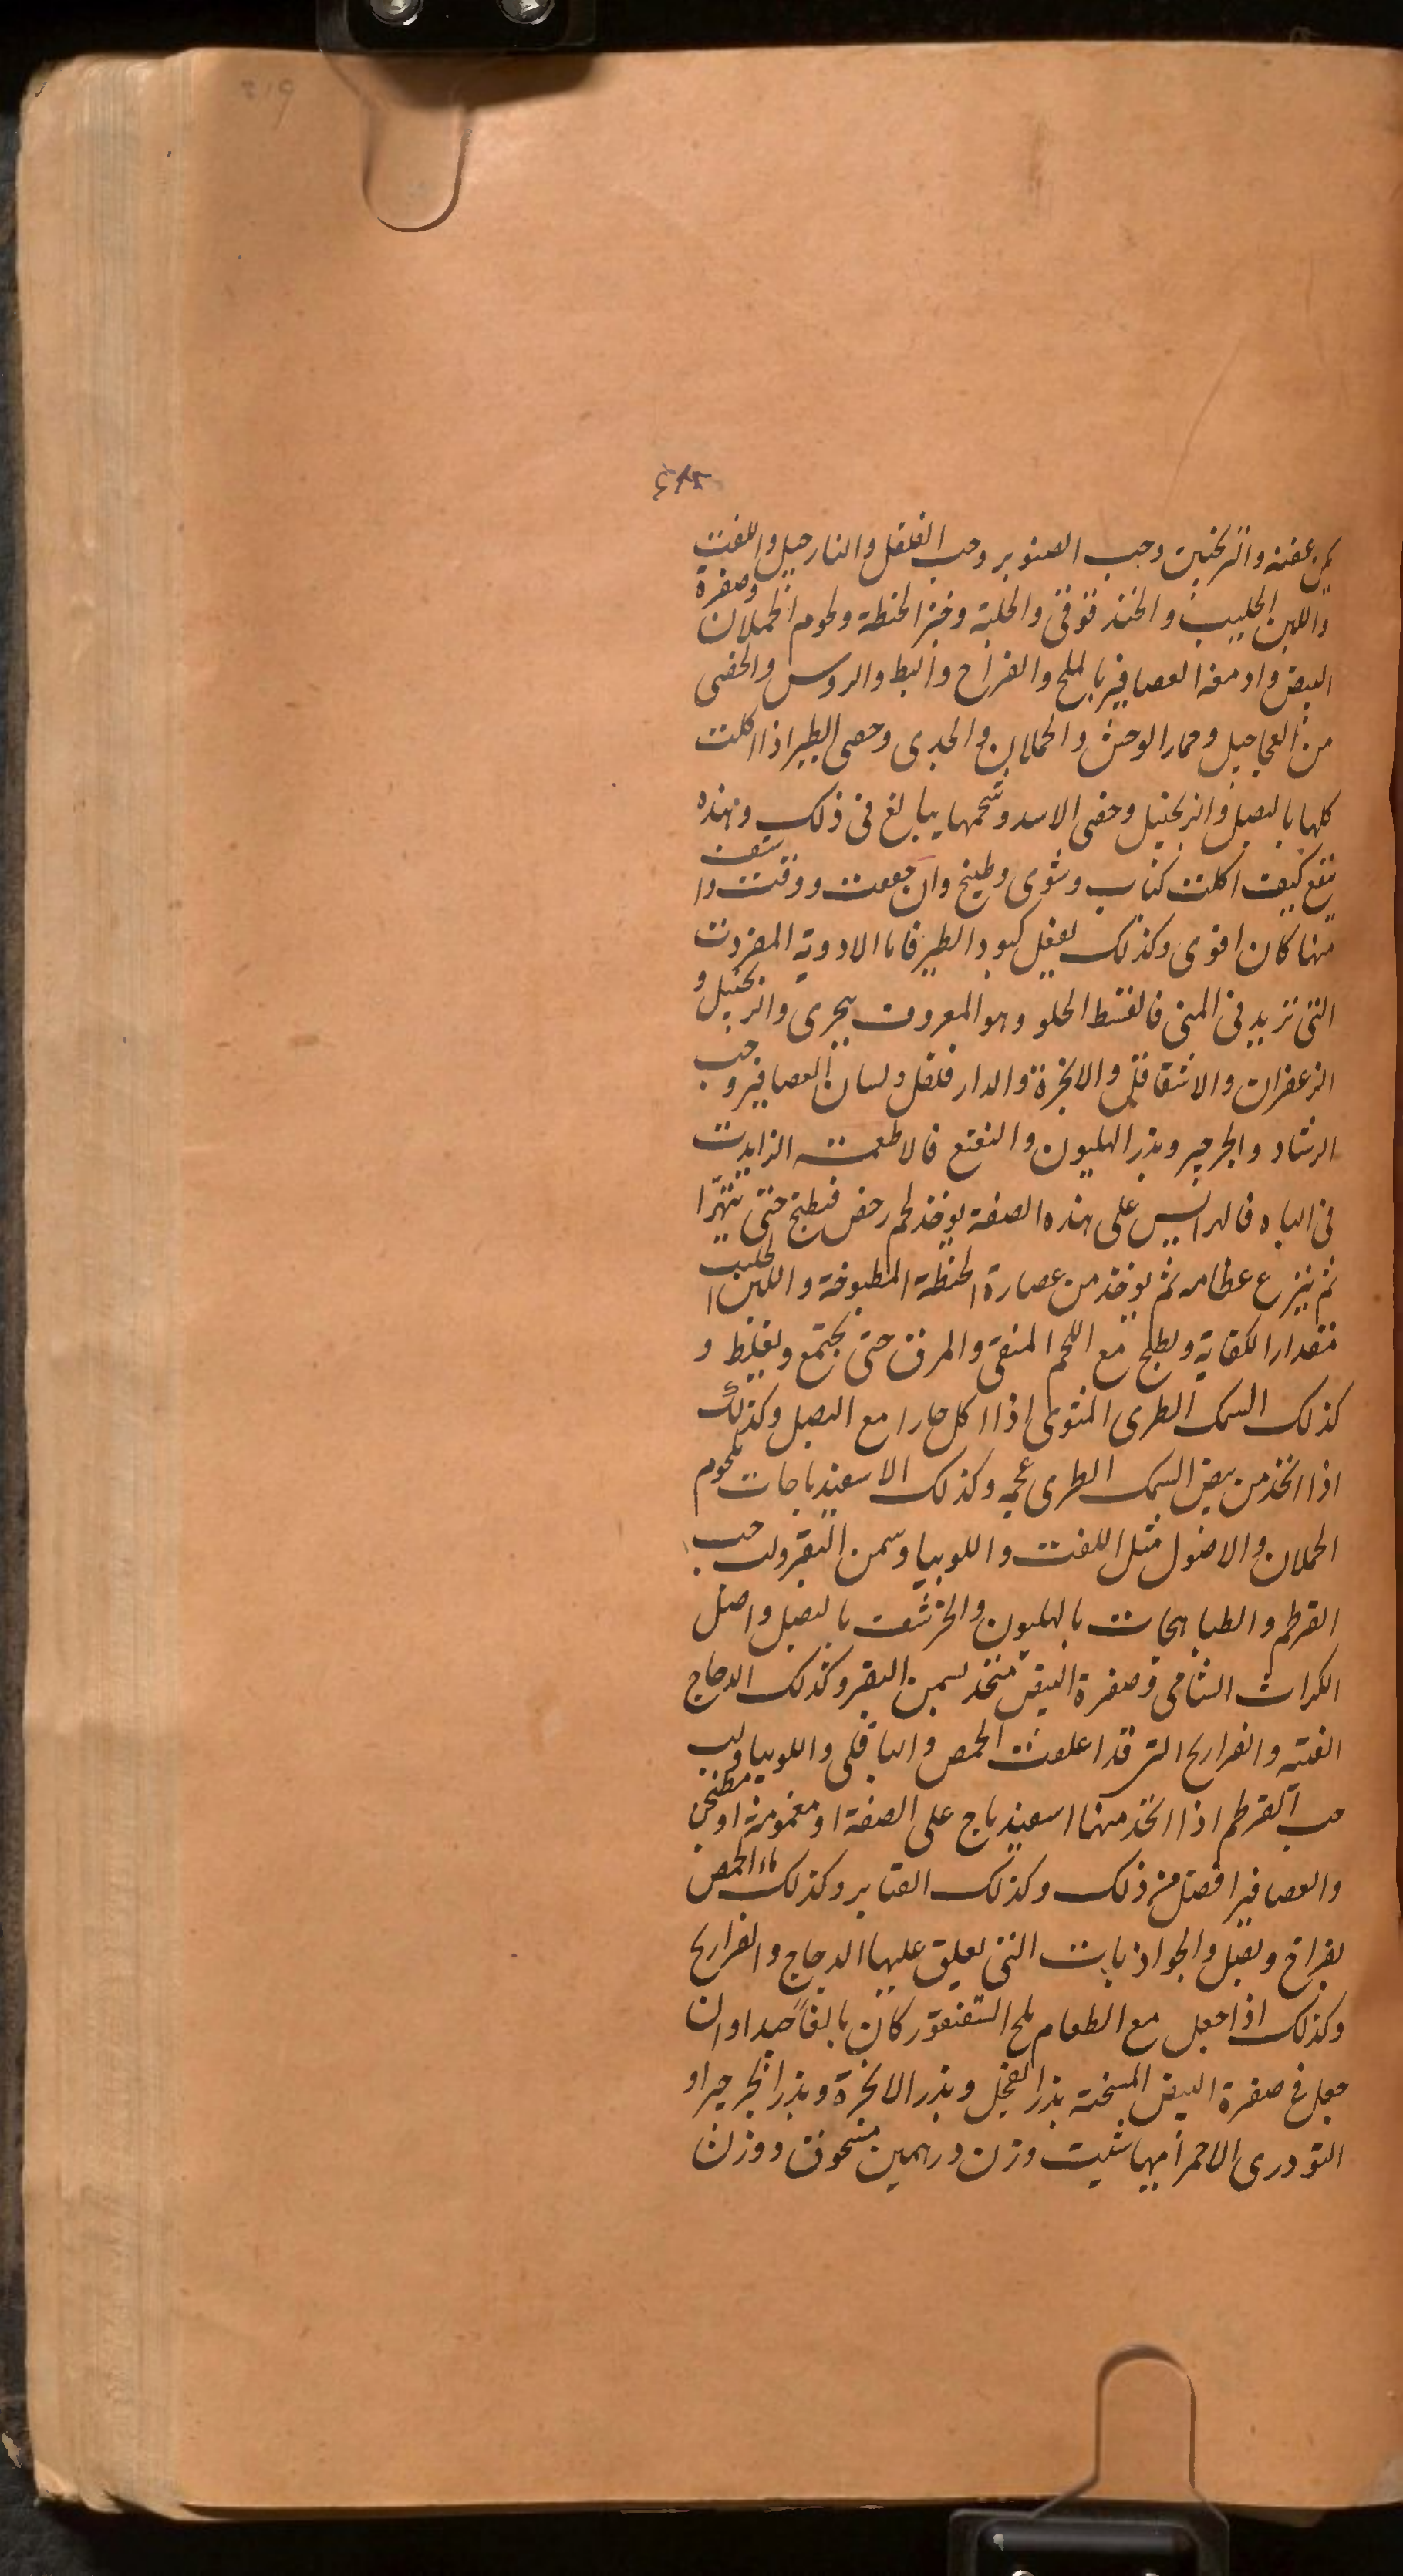 يكن عفنه والترنجبين وحب الصنوبر وحب الفلفل والنارجيل واللفت
واللبن الحليب والحندقوقى والحلبة وخبز الحنطة ولحوم الحملان وصفرة
البيض وادمغة العصافير بالملح والفراخ والبط والروس والخصى
من العجاجيل وحمار الوحش والحملان والجدى وخصى الطير اذا اكلت
كلها بالبصل والزنجبيل وخصى الاسد وشحمها يبالغ فى ذلك وهذه
تنفع كيف اكلت كباب وشوى وطبيخ وان جففت ودقت واستفت
منها كان اقوى وكذلك يفعل كبود الطير فاما الادوية المفردت
التى تزيد فى المنى فالقسط الحلو وهو المعروف ببحرى والزنجبيل و
الزعفران والاشقاقل والانجرة والدار فلفل ولسان العصافير وحب
الرشاد والجرجير وبذر الهليون والنعنع فالاطعمة الزايدت
فى الباه فالهرايس على هذه الصفة يوخذ لحم رخص فيطبخ حتى يتهرا
ثم ينزع عظامه ثم يوخذ من عصارة الحنطة المطبوخة واللبن الحليب
مقدار الكفاية ويطبخ مع اللحم المنقى والمرق حتى يجتمع ويغلظ و
كذلك السمك الطرى المشوى اذا اكل حارا مع البصل وكذلك
اذا اتخذ من بيض السمك الطرى عجه وكذلك الاسفيذباجات بلحوم
الحملان والاصول مثل اللفت واللوبيا وسمن البقر ولب حب
القرطم والطباهجات بالهليون والحرشف بالبصل واصل
الكراث الشامى وصفرة البيض متخذ بسمن البقر وكذلك الدجاج
الفتية والفراريح التى قد اعلفت الحمص والباقلى واللوبيا ولب
حب القرطم اذا اتخذ منها اسفيذباج على الصفة او مغمومة او مطجن
والعصافير افضل من ذلك وكذلك القنابر وكذلك ماء الحمص
بفراخ وبصل والجواذبات التى يعلق عليها الدجاج والفراريح
وكذلك اذا جعل مع الطعام ملح السقنقور كان بالغا جيدا وان
جعل فى صفرة البيض المسخنة بذر الفجل وبذر الانجرة وبذر الجرجير او
التودرى الاحمر ايها شيت وزن درهمين مسحوق ووزن